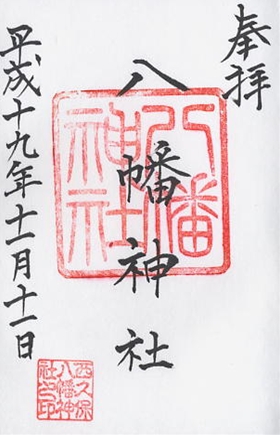 奉拝
八幡神社
平成十九年十一月十一日
八幡
神社
西久保
八幡神
社之印